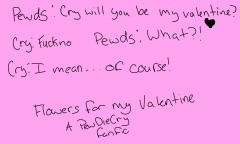 Pewds: Cry will you be my valentine?
Cry: Fuckno Pewds: What?!
Cry: I mean... of course!
Flowers for my Valentine
A PewDieCry
fanfic